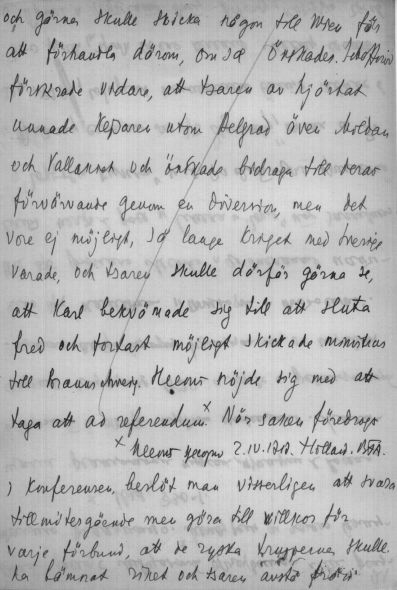 och gärna skulle skicka någon till Wien för
att förhandla därom, om så önskades. Schaffirov
försäkrade vidare, att tsaren av hjärtat
unnade Kejsaren utom Belgrad även Moldau
och Vallakiet och önskade bidraga till deras
förvärvande genom en diversion, men det
vore ej möjligt, så länge kriget med Sverige
varade, och tsaren skulle därför gärna se,
att Karl bekvämade sig till att sluta
fred och fortast möjligt skickade ministrar
till Braunschweig. nöjde sig med att
taga att ad referendum x När saken föredrogs
x 2.IV. Holland.
i konferensen, beslöt man visserligen att svara
tillmötesgående men göra till villkor för
varje förbund, att de ryska trupperna skulle
ha lämnat riket och tsaren avstå